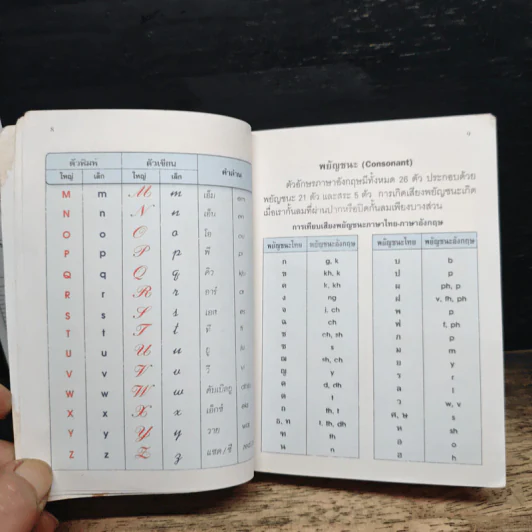 ๘
ตัวพิมพ์ ตัวเขียน คำอ่าน
ใหญ่ เล็ก ใหญ่ เล็ก
M m M m เอ็ม
N n N n เอ็น
O o O o โอ
P p P p พี
Q q Q q คิว
R r R r อาร์
S s S s เอส
T t T t ที
U u U u ยู
V v V v วี
W w W w ดับเบิลยู
X x X x เอ็กซ์
Y y Y y วาย
Z z Z z แซด / ซี
๙
พยัญชนะ (Consonant)
ตัวอักษรภาษาอังกฤษมีทั้งหมด 26 ตัว ประกอบด้วย
พยัญชนะ 21 ตัว และสระ 5 ตัว การเกิดเสียงพยัญชนะเกิด
เมื่อเรากั้นลมที่ผ่านปากหรือปิดกั้นลมเพียงบางส่วน
การเทียบเสียงพยัญชนะภาษาไทย-ภาษาอังกฤษ
พยัญชนะไทย พยัญชนะอังกฤษ
ก g, k
ข kh, k
ค k, kh
ง ng
จ j, ch
ฉ ch
ช ch, sh
ซ s
ฌ sh, ch
ญ y
ด d, dh
ต t
ถ th, t
ท t, th, dh
th
น n
พยัญชนะไทย พยัญชนะอังกฤษ
บ b
ป p
ผ ph, p
ฝ v, fh, ph
พ p
ฟ f, ph
ภ p
ม m
ย y
ร r
ล l
ว w, v
ศ, ษ s
sh
อ o
h